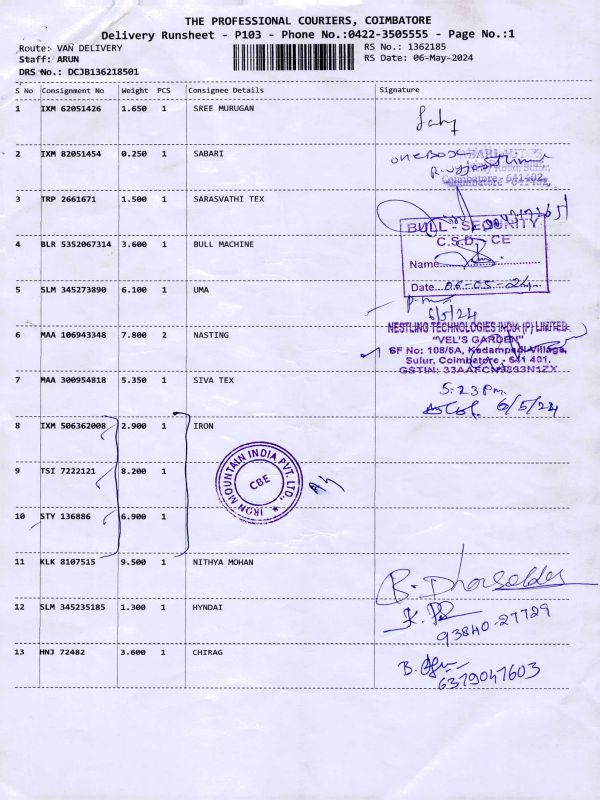 THE PROFESSIONAL COURIERS, COIMBATORE
Delivery Runsheet - P103 - Phone No.:0422-3505555 - Page No.:1
Route: VAN DELIVERY
RS No.: 1362185
Staff: ARUN
RS Date: 06-May-2024
DRS No.: DCJB136218501
S No Consignment No Weight PCS Consignee Details Signature
1 IXM 62051426 1.650 1 SREE MURUGAN
2 IXM 82051454 0.250 1 SABARI
Coimbatore - 641402,
3 TRP 2661671 1.500 1 SARASVATHI TEX
4 BLR 5352067314 3.600 1 BULL MACHINE
BULL - SECURITY
C.S.D - CE
Name
Date 06-05-24
5 SLM 345273890 6.100 1 UMA
6/5/24
6 MAA 106943348 7.800 2 NASTING
NESTLING TECHNOLOGIES INDIA (P) LIMITED
"VEL'S GARDEN"
SF No: 108/5A, Kadampadi Village,
Sulur, Coimbatore - 641 401.
7 MAA 300954818 5.350 1 SIVA TEX
5:23 Pm
6/5/24
8 IXM 506362008 2.900 1 IRON
9 TSI 7222121 8.200 1
IRON MOUNTAIN INDIA PVT. LTD.,
CBE
10 STY 136886 6.900 1
11 KLK 8107515 9.500 1 NITHYA MOHAN
12 SLM 345235185 1.300 1 HYNDAI
93840-27729
13 HNJ 72482 3.600 1 CHIRAG
6379047603